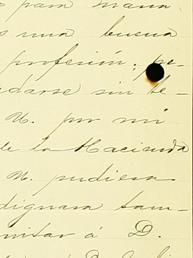 para
s una buena
profesión; pe-
darse sin te-
N. por mi
de la Hacienda
N. pudiera
dignara tam-
mitar á D.